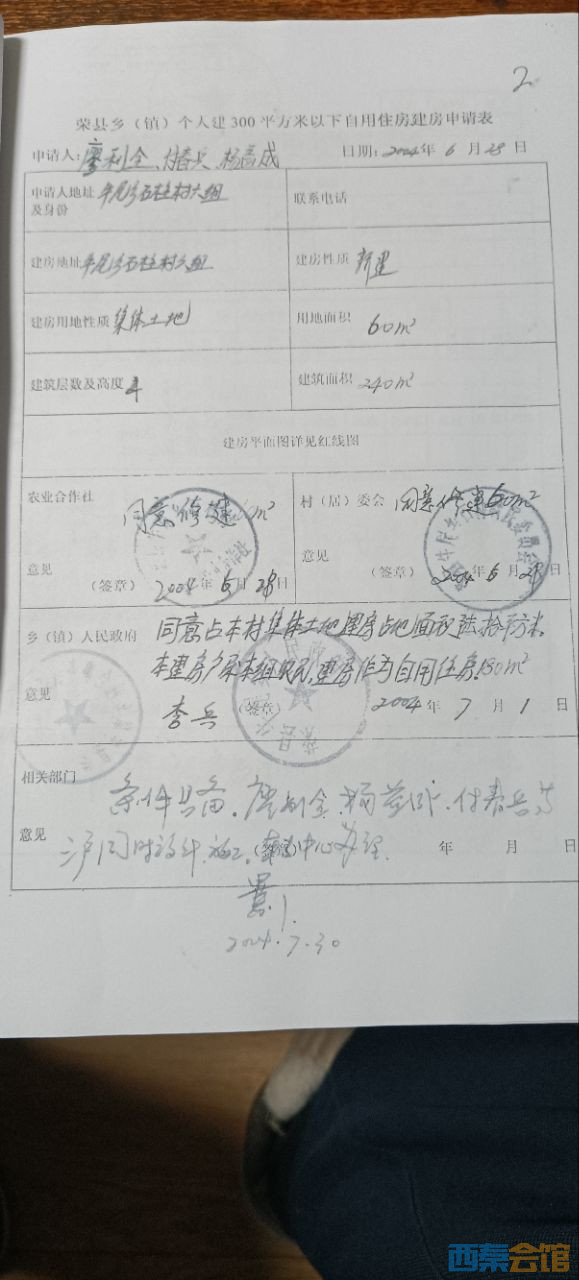 2
荣县乡（镇）个人建300平方米以下自用住房建房申请表
申请人：廖利全、付春兵、杨 日期：2004年6月28日
申请人地址及身份 牟尾 石柱村六组 联系电话
建房地址 牟尾 石柱村六组 建房性质 新建
建房用地性质 集体土地 用地面积 60m²
建筑层数及高度 4 建筑面积 240m²
建房平面图详见红线图
农业合作社 同意修建 m²
意见 （签章）2004年6月28日
村（居）委会 同意修建60m²
意见 （签章）2004年6月28日
乡（镇）人民政府 同意占本村集体土地建房占地面积陆拾平方米。
本建房户系本组农民，建房作为自用住房180m²
意见 李兵 （签章） 2004年7月1日
相关部门 条件具备。廖利全、杨 、付春兵等
意见 三户同时设计、施工。 （签章）中心办理 年 月 日
2004.7.30
西秦会馆